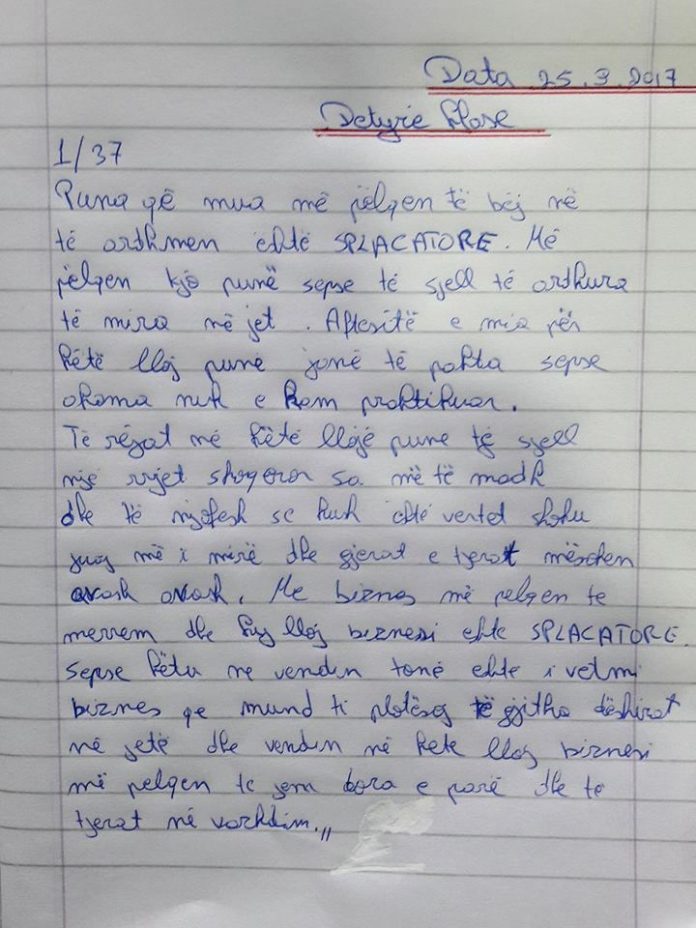 Data 25.9.2017
Detyrë klase
1/37
Puna që mua më pëlqen të bëj në
të ardhmen ështe SPLACATORE. Më
pëlqen kjo punë sepse të sjell të ardhura
të mira në jet. Aftesitë e mia për
këtë lloj pune janë të pakta sepse
akoma nuk e kam praktikuar.
Të rëjat në këtë llojë pune të sjell
një rrjet shoqeror sa më të madh
dhe të njofesh se kush ështe vertet shoku
juaj më i mirë dhe gjerat e tjerat mësohen
avash avash. Me biznes më pelqen te
merrem dhe ky lloj biznesi eshte SPLACATORE.
Sepse këtu ne vendin tonë eshte i vetmi
biznes qe mund ti plotësoj të gjitha dëshirat
në jetë dhe vendin në kete lloj biznesi
më pelqen te jem dora e parë dhe te
tjerat në vazhdim.,,